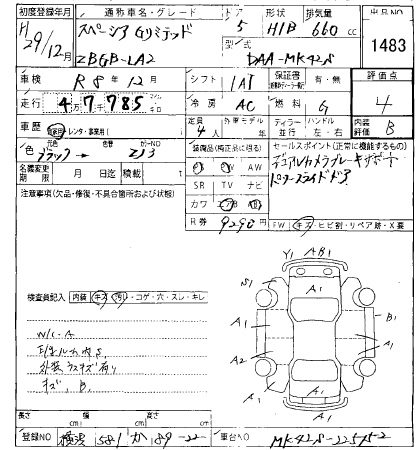 初度登録年月 通称車名・グレード ドア 形状 排気量 出品NO
H29/12月 スペーシア Gリミテッド 5 H/B 660cc 1483
ZBGB-LA2 型式 DAA-MK42S
車検 R8年12月 シフト IAT 保証書 有・無 評価点
走行 47785 冷房 AC 燃料 G 4
車歴 自家用・レンタ・事業用( ) 定員 4人 外車モデル 年 ディーラー 並行 ハンドル 左・右 内装評価 B
色 元色 ブラック → 色替 カラーNO ZJ3 装備品(純正品に限る) セールスポイント(正常に機能するもの)
PS PW AW デュアルカメラブレーキサポート
名義変更期限 月 日迄 積載量 t SR TV ナビ パワースライドドア
注意事項(欠品・修復・不具合箇所および状態) カワ エアB AB
R券 9290円 FW キズ・ヒビ割・リペア跡・X要
Y1 AB1
A1
検査員記入 内装 キズ・汚れ・コゲ・穴・スレ・キレ
A1 B1
A1
N/C.A
A2 A1
外装うすキズ有り
キズ、B,
A1
A1
長さ 幅 高さ
登録NO 横浜 581 か 89-22 車台NO MK42S-225752